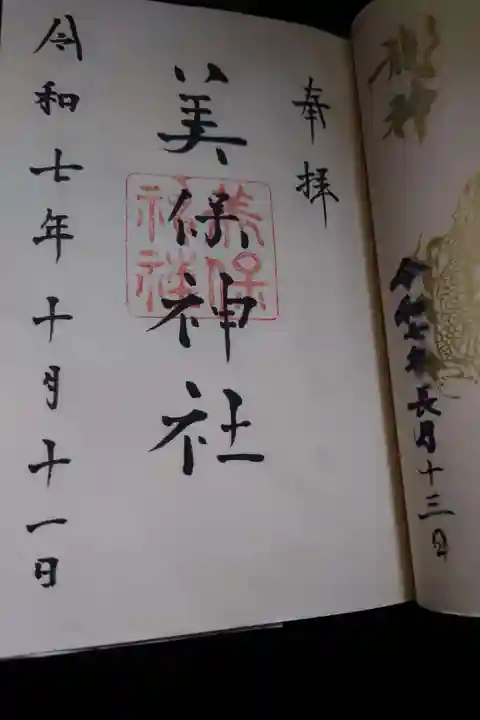 奉拝
美保神社
美保
神社
令和七年十月十一日
令和七年長月十三日